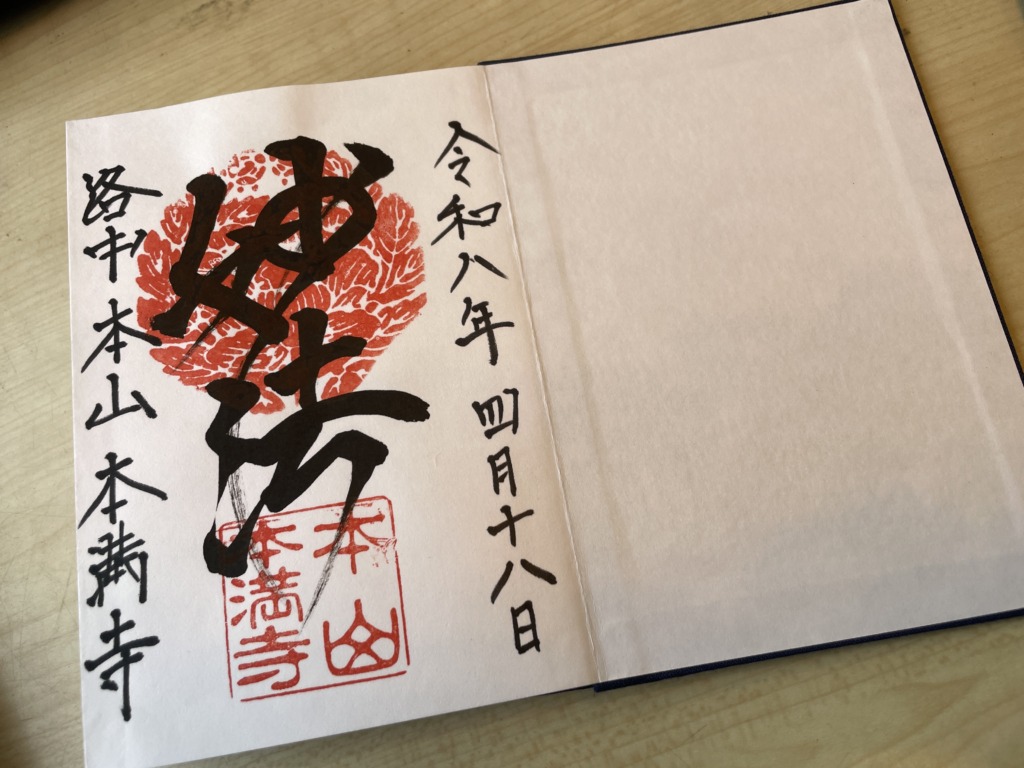 令和八年 四月十八日
妙法
本山
本満寺
洛中 本山 本満寺